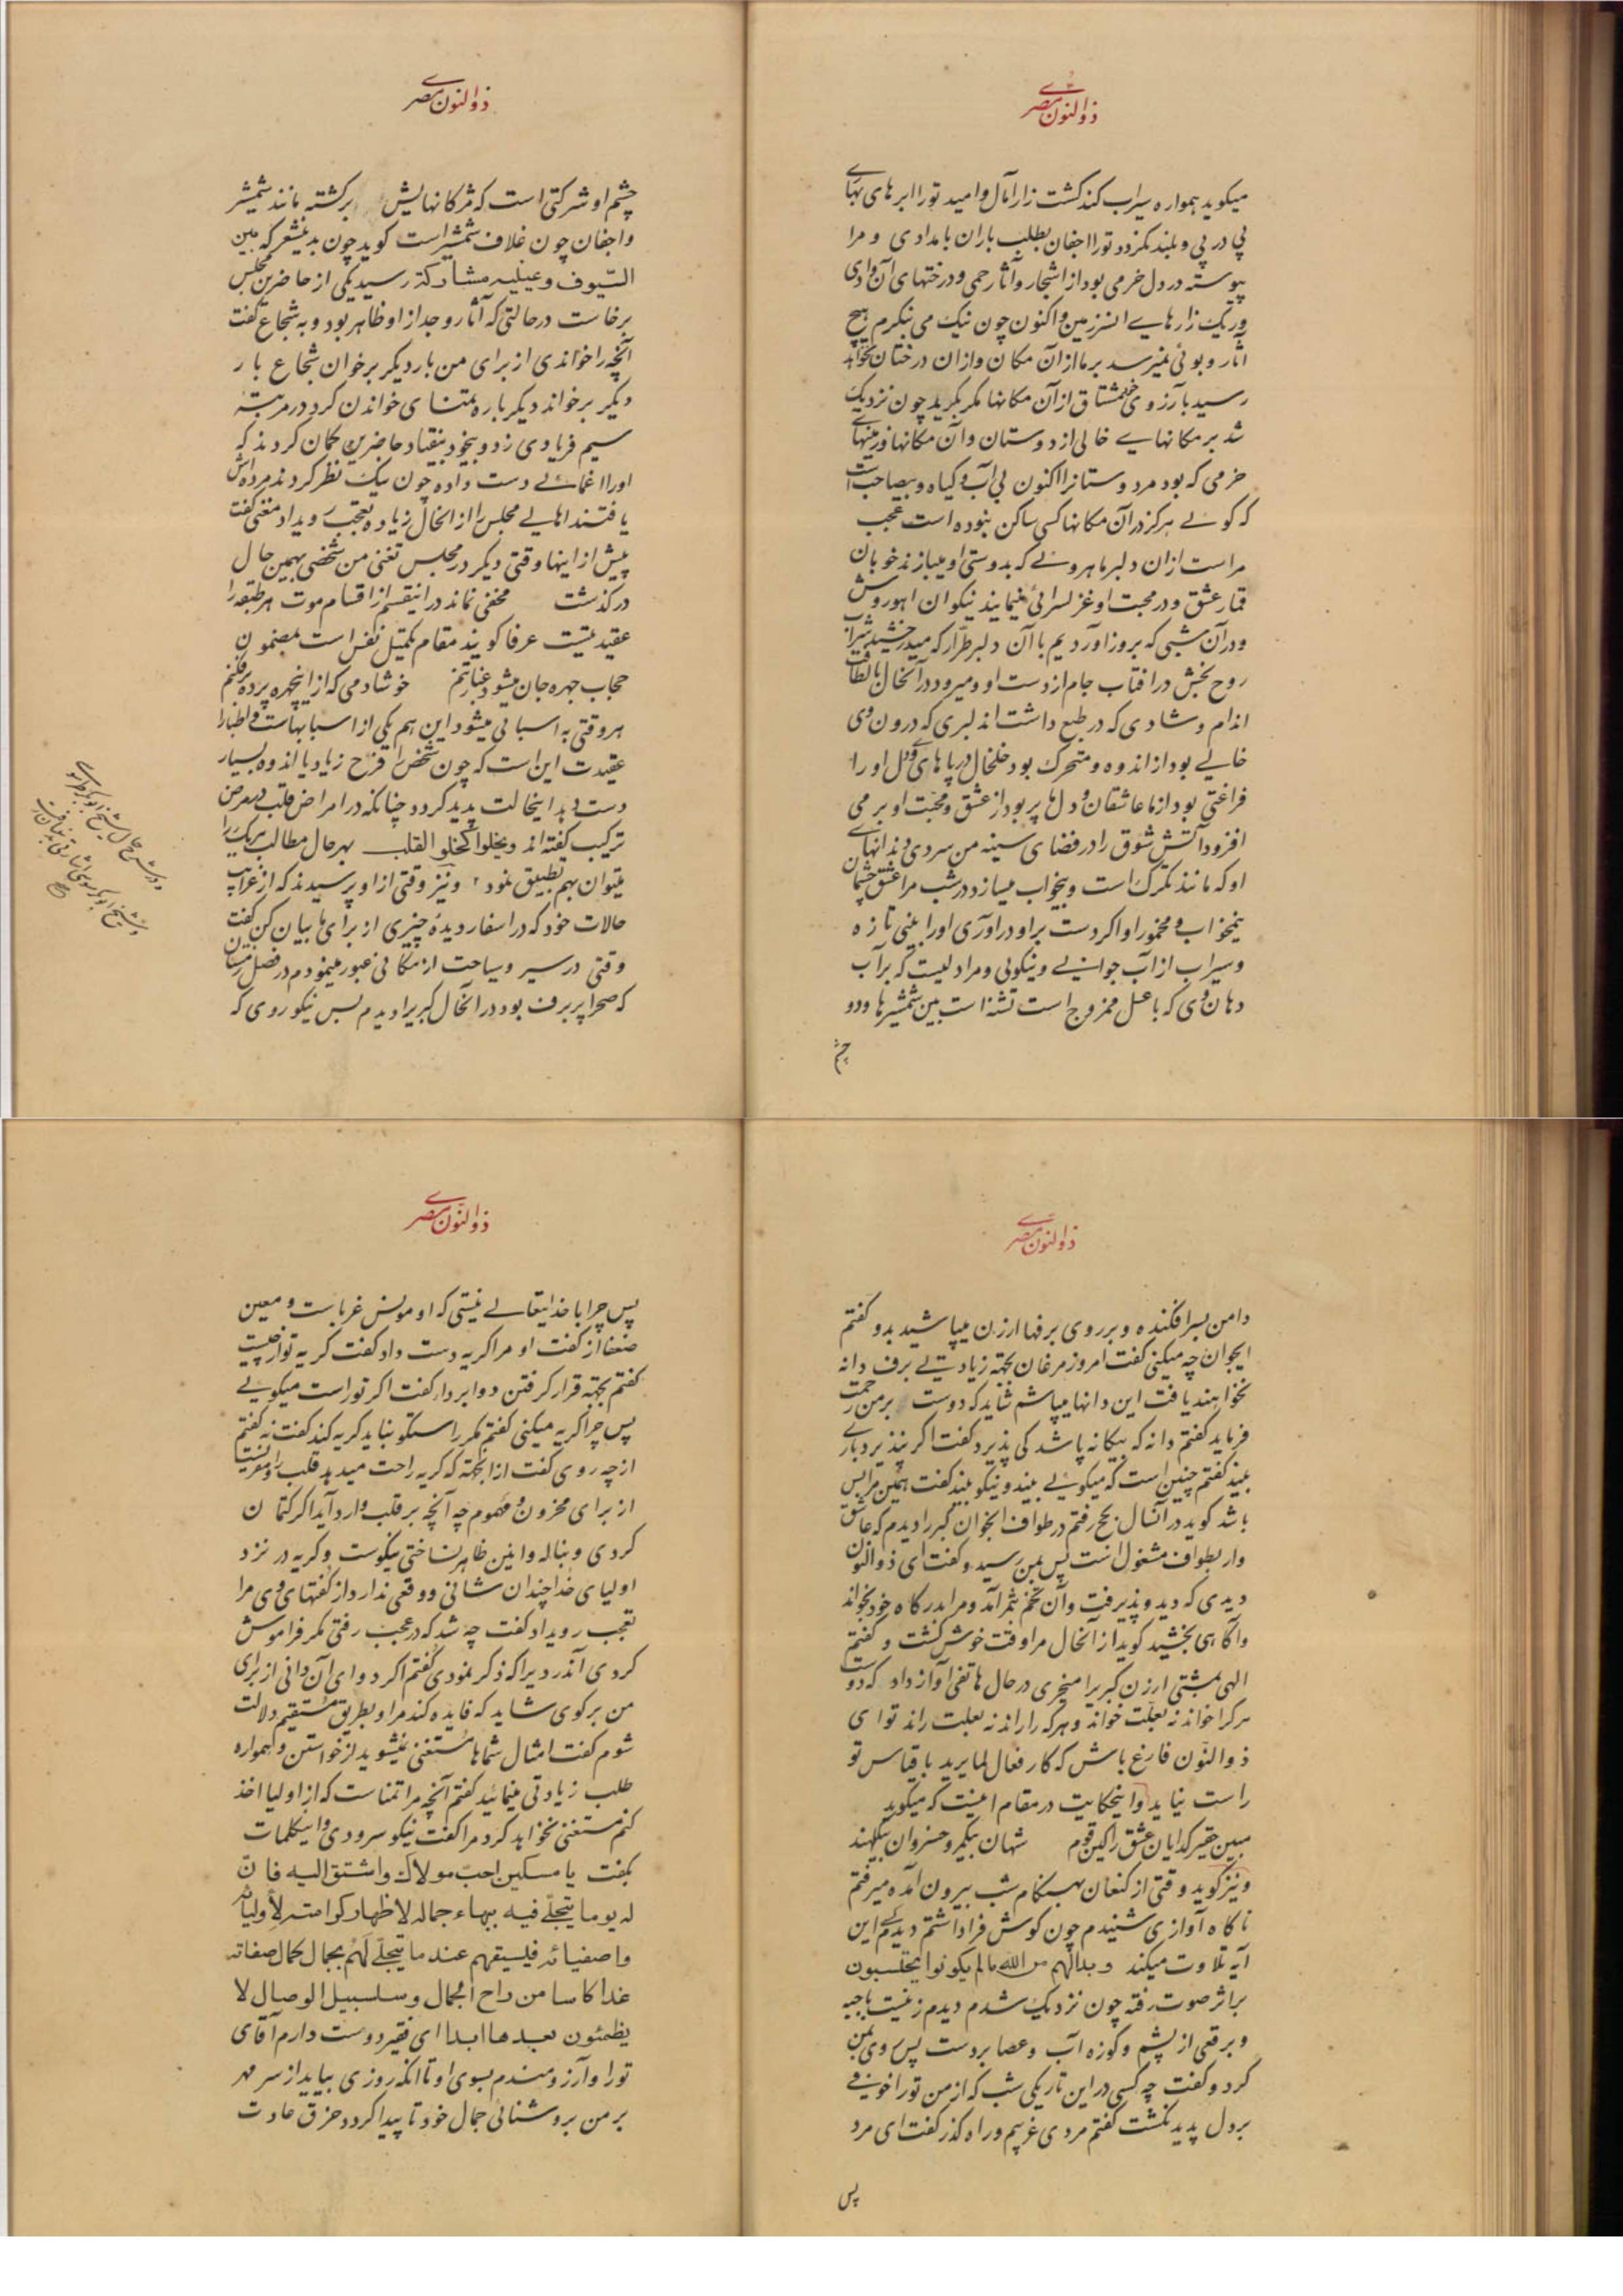 ذوالنون مصرے
میکوید همواره سیراب کند کشت زار آمال وامید تورا ابرهای بهارے
پی در پی و بلند نکردد تورا اجفان بطلب باران بامدادی و مرا
پیوسته در دل خرمی بود از اشجار وآثار حمی ودرختهای آن وادی
وریک زارهایے انسرزمین واکنون چون نیک می نکرم هیچ
آثار وبوئی نمیرسد برما از آن مکان وازان درختان نخواهد
رسید بآرزوی خود مشتاق از آن مکانها مکر بکرید چون نزدیک
شد بر مکانهایے خالی از دوستان وآن مکانها وزمینهاے
خرمی که بود مر دوستانرا اکنون بی آب وکیاه و بیصاحب است
که کوئے هرکز در آن مکانها کسی ساکن نبوده است عجب
مراست ازان دلبر ماهروئے که بدوستی او میبازند خوبان
قمار عشق ودر محبت او غزلسرائی مینمایند نیکوان اهوروش
ودر آن شبی که بروز آوردیم با آن دلبر طرار که میدرخشید شراب
روح بخش در افتاب جام از دست او ومیرود در آنحال بالطافت
اندام وشادی که در طبع داشت اندلبری که درون وی
خالیے بود از اندوه ومتحرک بود خلخال در پاهای وی ودل او را
فراغتی بود از ما عاشقان ودل ها پر بود از عشق ومحبت او بر می
افزود آتش شوق را در فضای سینه من سردی دندانهاے
او که مانند تکرک است وبیخواب میسازد در شب مرا عشق چشمان
نیمخواب ومخمور او اکر دست بر او در آوری اورا بینی تازه
وسیراب از آب جوانیے ونیکوئی ومرا دلیست که بر آب
دهان وی که با عسل ممزوج است تشنه است بین شمشیرها ودو
چشم
ذوالنون مصرے
چشم او شرکتی است که مژکانهایش برکشته مانند شمشیر
واجفان چون غلاف شمشیر است کوید چون بدینشعر که بین
السّیوف وعینیه مشارکة رسید یکی از حاضرین مجلس
برخاست درحالتی که آثار وجد از او ظاهر بود وبه شجاع کفت
آنچه را خواندی از برای من بار دیکر برخوان شجاع بار
دیکر برخواند دیکر باره تمنای خواندن کرد در مرتبهٔ
سیم فریادی زد وبیخود بیفتاد حاضرین کمان کردند که
اورا اغمائے دست داده چون نیک نظر کردند مرده اش
یافتند اهالیے مجلس را از انحال زیاده تعجب رویداد مغنی کفت
پیش از اینها وقتی دیکر در مجلس تغنی من شخصی بهمین حال
درکذشت مخفی نماند در اینقسم از اقسام موت هر طبقه را
عقیدتیست عرفا کویند مقام تکمیل نفس است بمضمون
حجاب چهره جان میشود غبار تنم خوشا دمی که از اینچهره پرده برفکنم
هر وقتی به اسبابی میشود این هم یکی از اسبابهاست واطبارا
عقیدت این است که چون شخص را فرح زیاد یا اندوه بسیار
دست دهد اینحالت پدید کردد چنانکه در امراض قلب در مرض
ترکیب کفته اند ویخلو القلب بهر حال مطالب هریک را
میتوان بهم تطبیق نمود ونیز وقتی از او پرسیدند که از غرایب
حالات خود که در اسفار دیدهٔ چیزی از برای ما بیان کن کفت
وقتی در سیر وسیاحت از مکانی عبور مینمودم در فصل زمستان
که صحرا پر برف بود در انحال کبریرا دیدم بس نیکو روی که
ذوالنون مصرے
دامن بسر افکنده وبر روی برفها ارزن میپاشید بدو کفتم
ایجوان چه میکنی کفت امروز مرغان بجهة زیادتیے برف دانه
نخواهند یافت این دانها میپاشم شاید که دوست برمن رحمت
فرماید کفتم دانه که بیکانه پاشد کی پذیرد کفت اکر نپذیرد بارے
بیند کفتم چنین است که میکویے بیند ونیکو بیند کفت همین مرا بس
باشد کوید در آنسال بحج رفتم در طواف انجوان کبر را دیدم که عاشق
وار بطواف مشغول است پس بمن رسید وکفت ای ذوالنون
دیدی که دید وپذیرفت وآن تخم ثمر آمد ومرا بدرکاه خود بخواند
وآکاهی بخشید کوید از آنحال مرا وقت خوش کشت وکفتم
الهی بمشتی ارزن کبریرا میخری در حال هاتفی آواز داد که دوست
هرکرا خواند نه بعلت خواند وهرکه را راند نه بعلت راند تو ای
ذوالنون فارغ باش که کار فعال لما یرید با قیاس تو
راست نیاید واینحکایت در مقام اینست که میکوید
مبین حقیر کدایان عشق را کین قوم شهان بیکمر وخسروان بیکلهند
ونیز کوید وقتی از کنعان بهنکام شب بیرون آمده میرفتم
ناکاه آوازی شنیدم چون کوش فرا داشتم دیدم کسے این
آیه تلاوت میکند وبدالهم من الله مالم یکونوا یحتسبون
بر اثر صوت رفته چون نزدیک شدم دیدم زنیست با جبه
وبرقعی از پشم وکوزه آب وعصا بر دست پس روی بمن
کرد وکفت چه کسی در این تاریکی شب که از من تورا خوفے
بر دل پدید نکشت کفتم مردی غریبم وراه کذر کفت ای مرد
پس
ذوالنّون مصرے
پس چرا با خدایتعالے نیستی که او مونس غرباست ومعین
ضعفا از کفت او مرا کریه دست داد کفت کریه تو از چیست
کفتم بجهة قرار کرفتن دوا بر داء کفت اکر تو راست میکویے
پس چرا کریه میکنی کفتم مکر راستکو نباید کریه کند کفت نه کفتم
از چه روی کفت از انجهة که کریه راحت میدهد قلب را
از برای محزون ومهموم چه آنچه بر قلب وارد آید اکر کتمان
کردی وبناله وانین ظاهر نساختی نیکوست وکریه در نزد
اولیای خدا چندان شانی ووقعی ندارد از کفتهای وی مرا
تعجب رویداد کفت چه شد که در عجب رفتی مکر فراموش
کردی آندردیرا که ذکر نمودی کفتم اکر دوای آن دانی از برای
من برکوی شاید که فایده کند مرا وبطریق مستقیم دلالت
شوم کفت امثال شماها مستغنی نمیشوید از خواستن وهمواره
طلب زیادتی مینمائید کفتم آنچه مرا تمناست که از اولیا اخذ
کنم مستغنی نخواهد کرد مرا کفت نیکو سرودی واینکلمات
بکفت یا مسکین احبّ مولاک واشتق الیه فانّ
له یوما یتجلّے فیه ببهاء جماله لاظهار کرامته لأولیائه
واصفیائه فلیسیقهم عند ما یتجلّے لَهُم بجمال کمال صفاته
غدا کاسا من راح الجمال وسلسبیل الوصال لا
یظمئون بعدها ابدا ای فقیر دوست دارم آقای
تورا وآرزومندم بسوی او تا انکه روزی بیاید از سر مهر
بر من بروشنائی جمال خود تا پیدا کردد خرق عادت